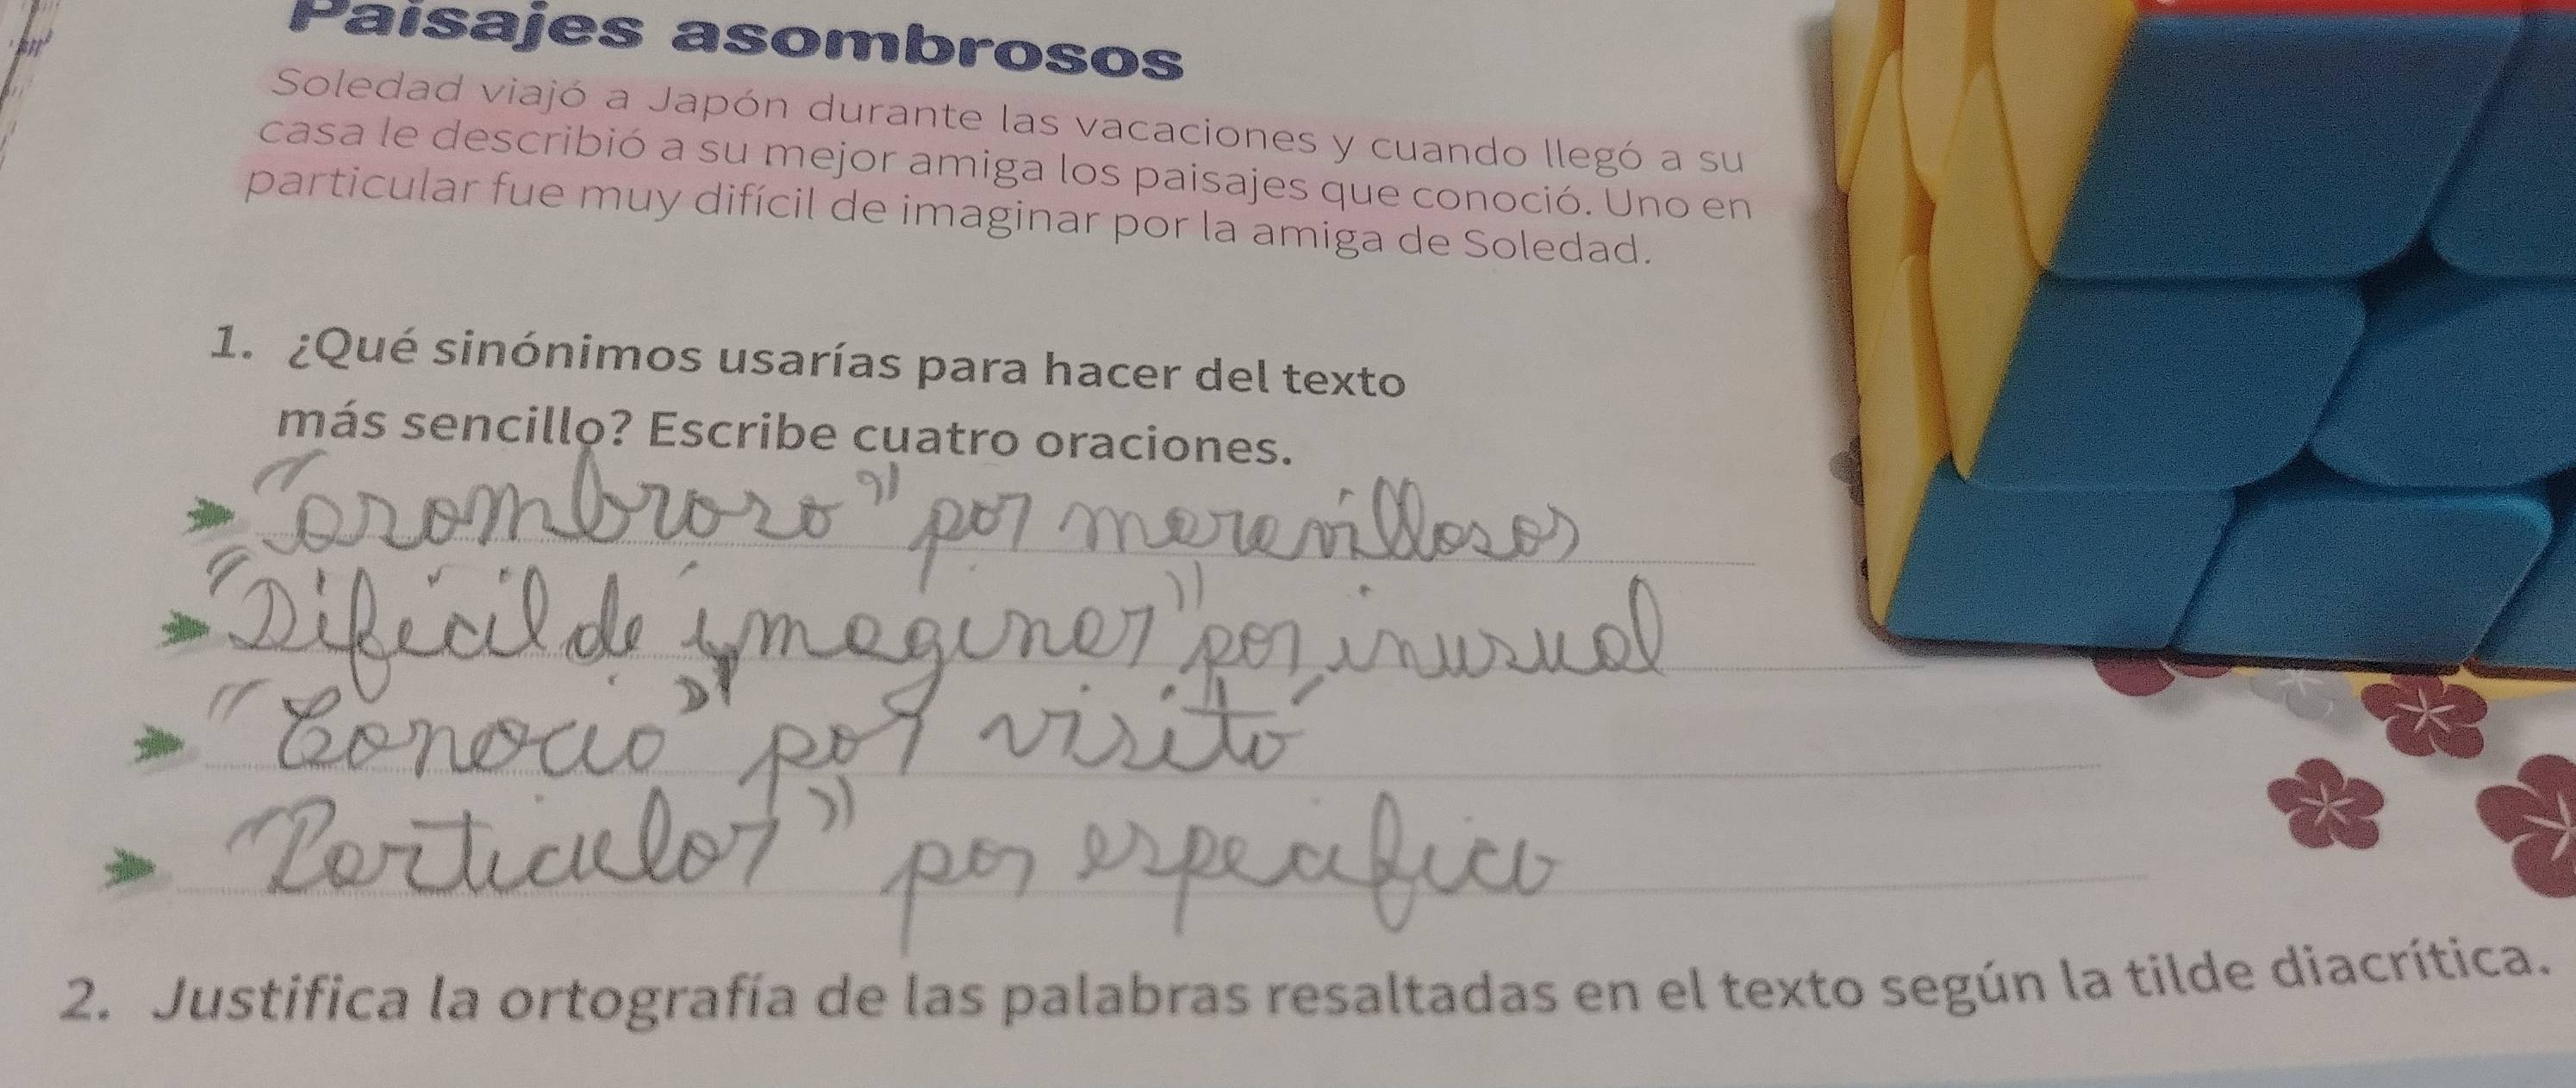 Paisajes asombrosos
Soledad viajó a Japón durante las vacaciones y cuando llegó a su
casa le describió a su mejor amiga los paisajes que conoció. Uno en
particular fue muy difícil de imaginar por la amiga de Soledad.
1. ¿Qué sinónimos usarías para hacer del texto
más sencillo? Escribe cuatro oraciones.
"asombroso" por maravillosos
"Difícil de imaginar" por inusual
"Conocio" por visitó
"Particular" por especifico
2. Justifica la ortografía de las palabras resaltadas en el texto según la tilde diacrítica.